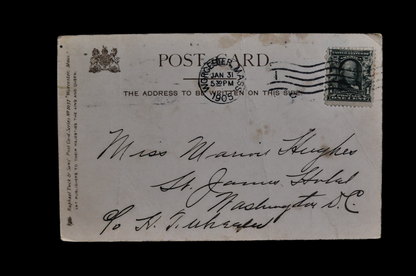 POST CARD.
WORCESTER, MASS.
JAN 31
5 30 PM
1905
1
THE ADDRESS TO BE WRITTEN ON THIS SIDE
Miss Marion Hughes
St. James Hotel
Washington D.C.
c/o H. T. Wheeler
Raphael Tuck & Sons' Post Card Series
ART PUBLISHERS TO THEIR MAJESTIES THE KING AND QUEEN.